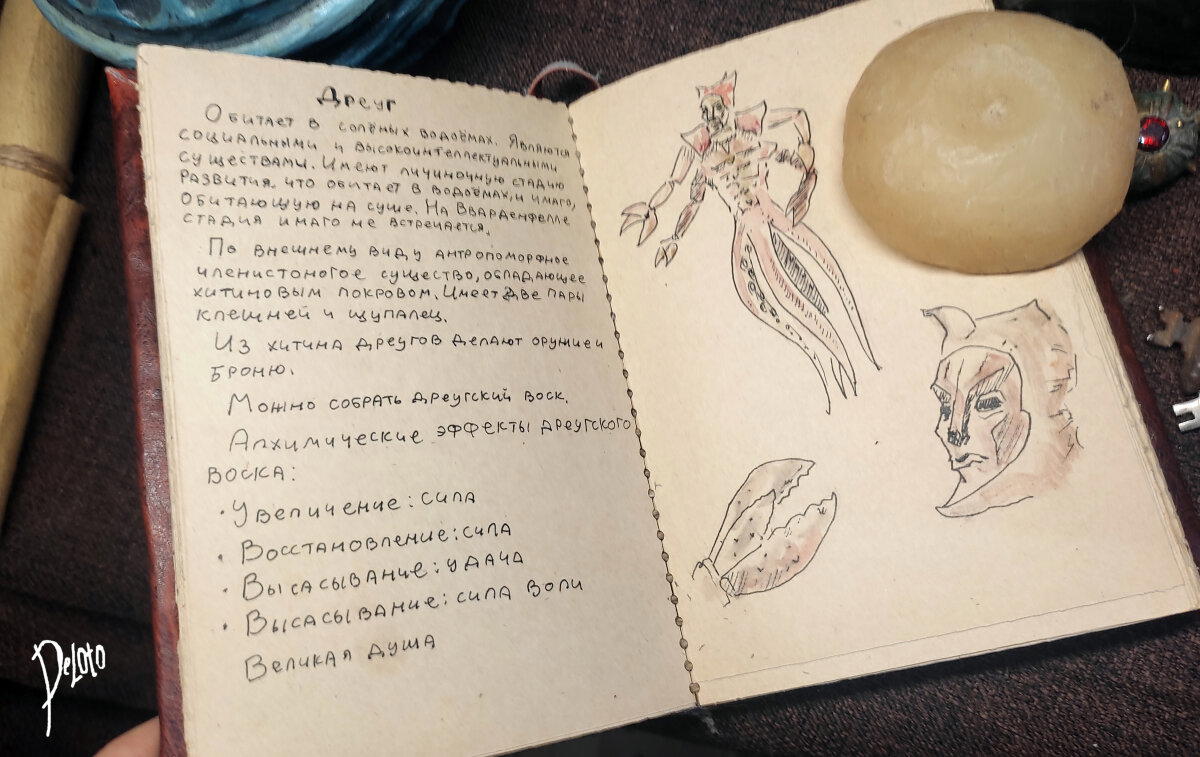 Дреуг
Обитает в солёных водоёмах. Являются
социальными и высокоинтеллектуальными
существами. Имеют личиночную стадию
развития, что обитает в водоёмах, и имаго,
обитающую на суше. На Вварденфелле
стадия имаго не встречается.
По внешнему виду антропоморфное
членистоногое существо, обладающее
хитиновым покровом. Имеет две пары
клешней и щупалец.
Из хитина дреугов делают оружие и
броню.
Можно собрать дреугский воск.
Алхимические эффекты дреугского
воска:
· Увеличение: сила
· Восстановление: сила
· Высасывание: удача
· Высасывание: сила воли
Великая душа
DeLoto